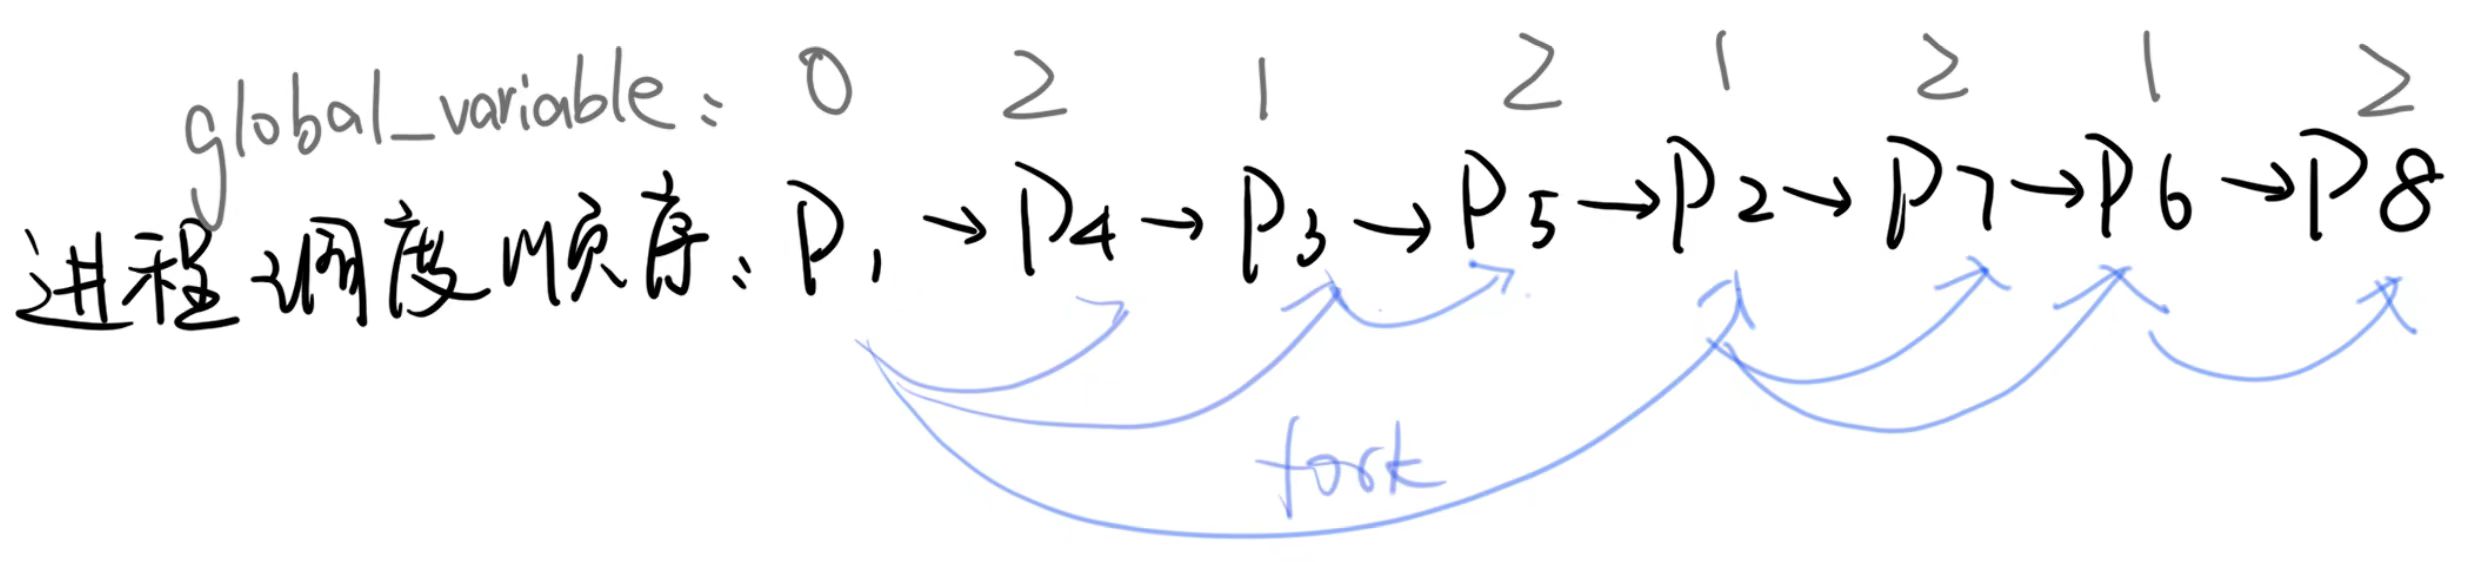 global_variable: 0 2 1 2 1 2 1 2
进程调度顺序: P1 → P4 → P3 → P5 → P2 → P7 → P6 → P8
fork